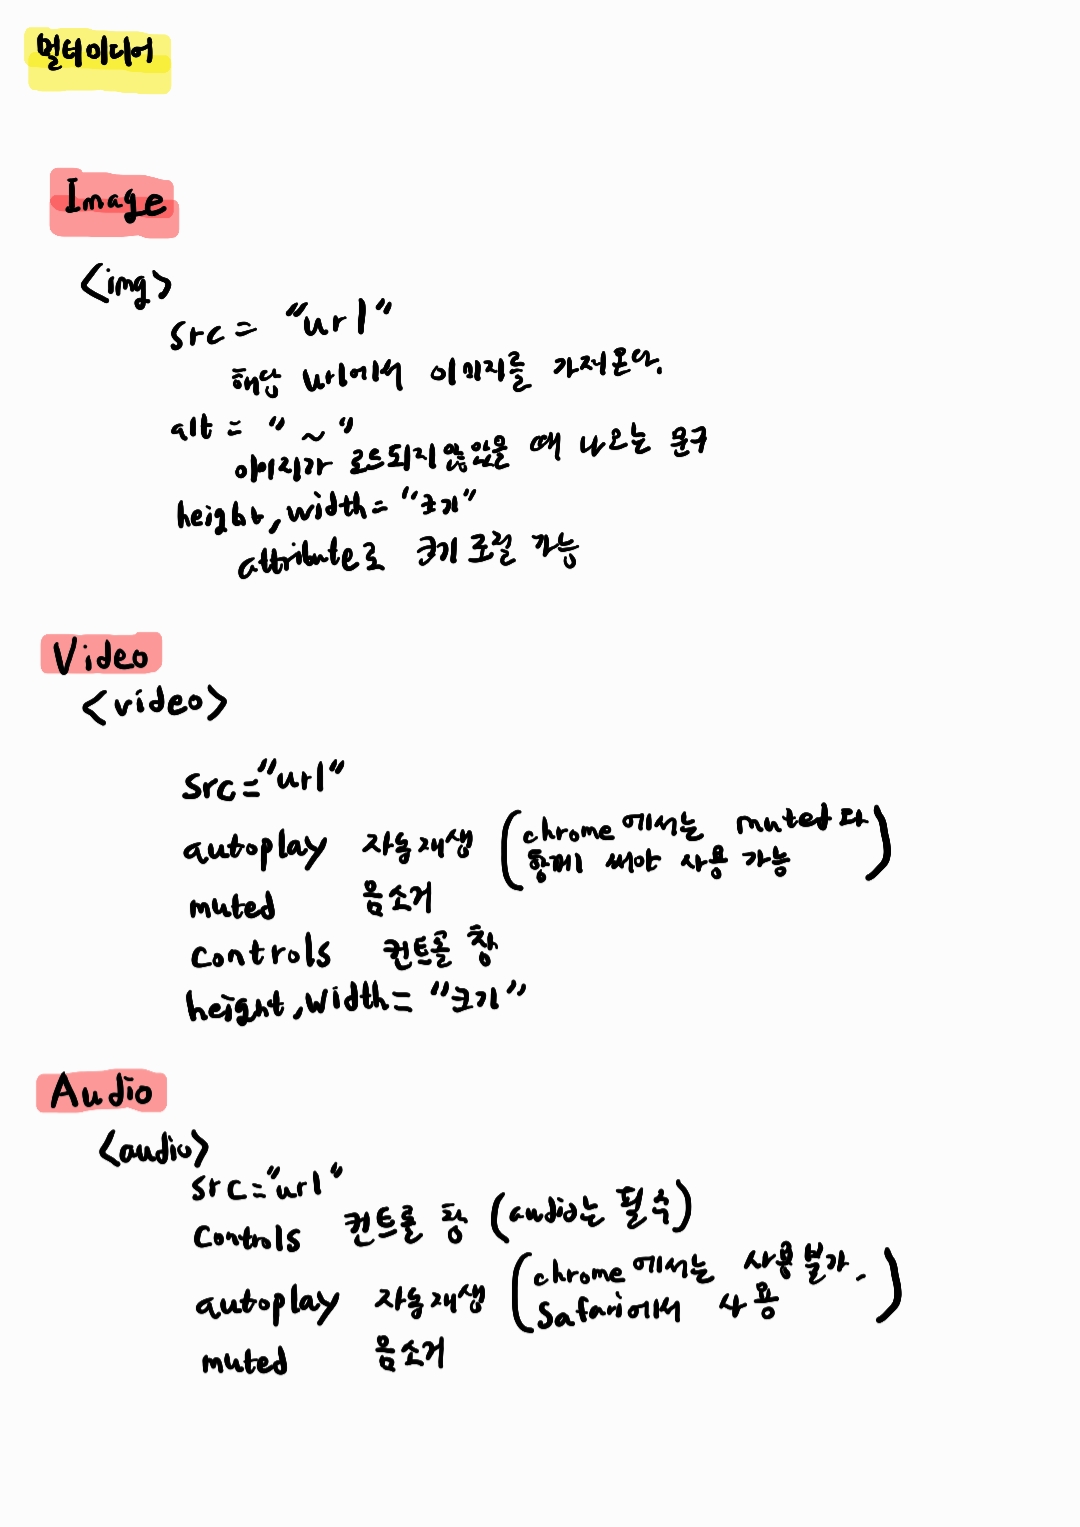 멀티미디어
Image
<img>
src = "url"
해당 url에서 이미지를 가져온다.
alt = " ~ "
이미지가 로드되지 않았을 때 나오는 문구
height, width = "크기"
attribute로 크기 조절 가능
Video
<video>
src="url"
autoplay 자동재생 (chrome에서는 muted와
함께 써야 사용 가능)
muted 음소거
controls 컨트롤 창
height, width = "크기"
Audio
<audio>
src="url"
controls 컨트롤 창 (audio는 필수)
autoplay 자동재생 (chrome에서는 사용불가.
Safari에서 사용)
muted 음소거